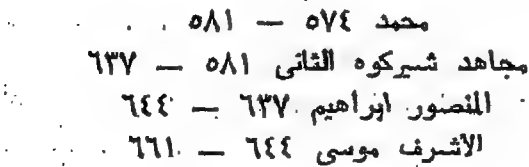 محمد ٥٧٤ — ٥٨١
مجاهد شيركوه الثانى ٥٨١ — ٦٣٧
المنصور ابراهيم ٦٣٧ — ٦٤٤
الأشرف موسى ٦٤٤ — ٦٦١